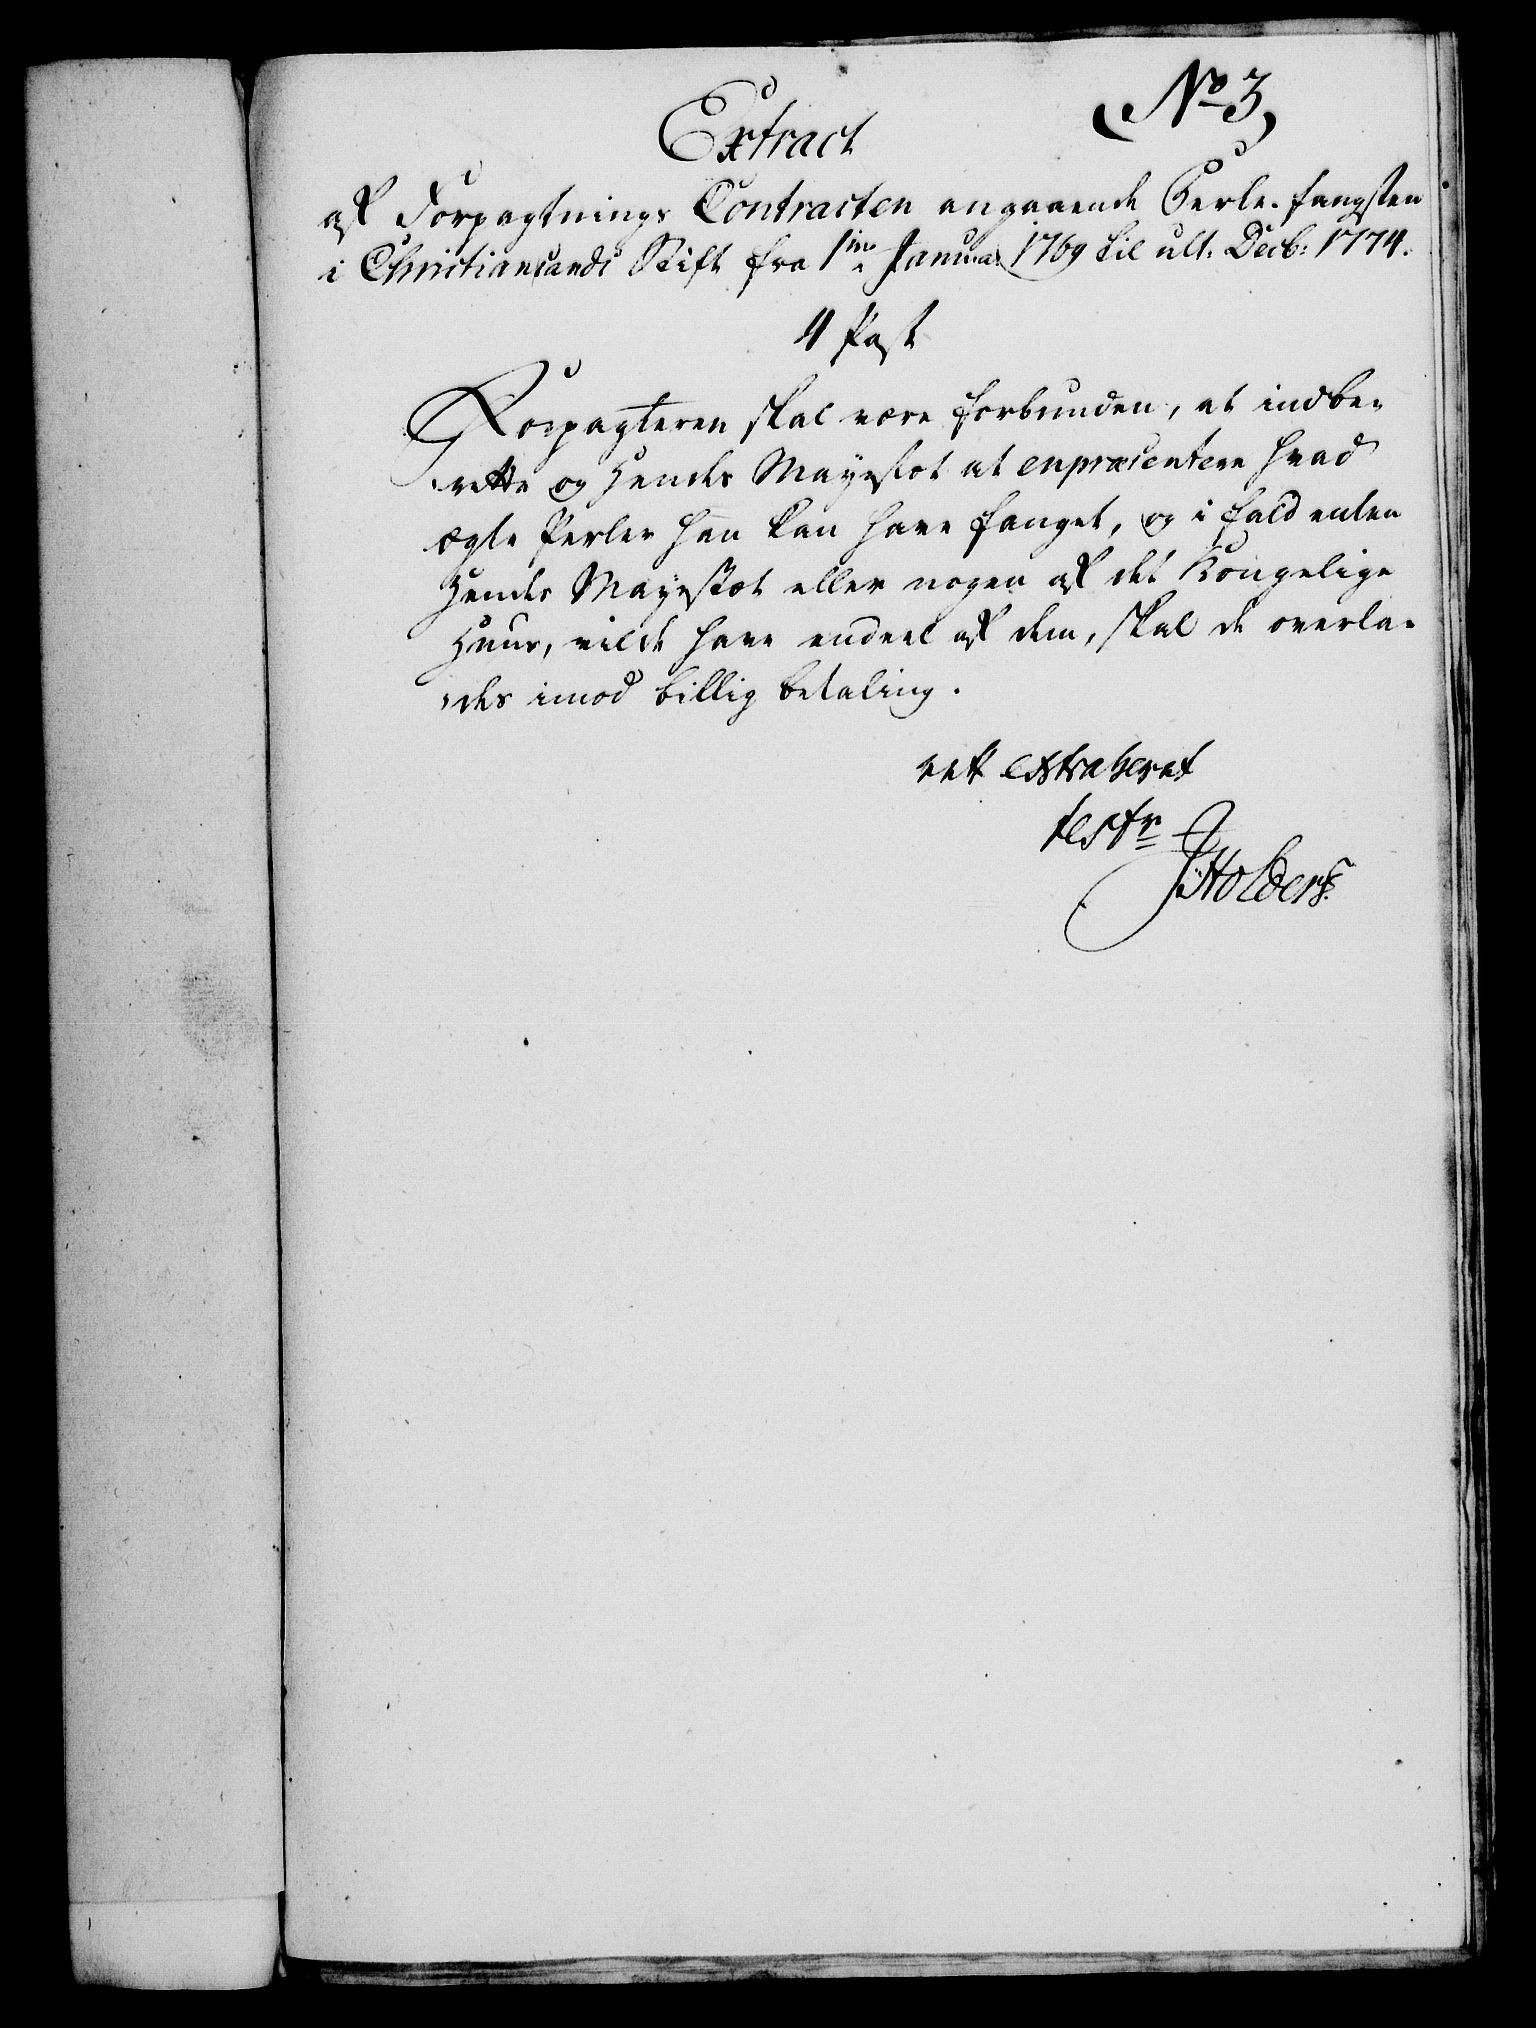 No 3
Extract
af Forpagtnings Contracten angaaende Perle-fangsten
i Christiansands Stift fra 1ste Januar 1769 til ult. Decb: 1774.
4 Post
Forpagteren skal være forbunden, at indbe-
rette og Hendes Mayestæt at præsentere hvad
ægte Perler han kan have fanget, og i fald enten
Hendes Mayestæt eller nogen af det Kongelige
Huus, vilde have endeel af dem, skal de overla-
des imod billig betaling.
ret extraheret
test
Holders